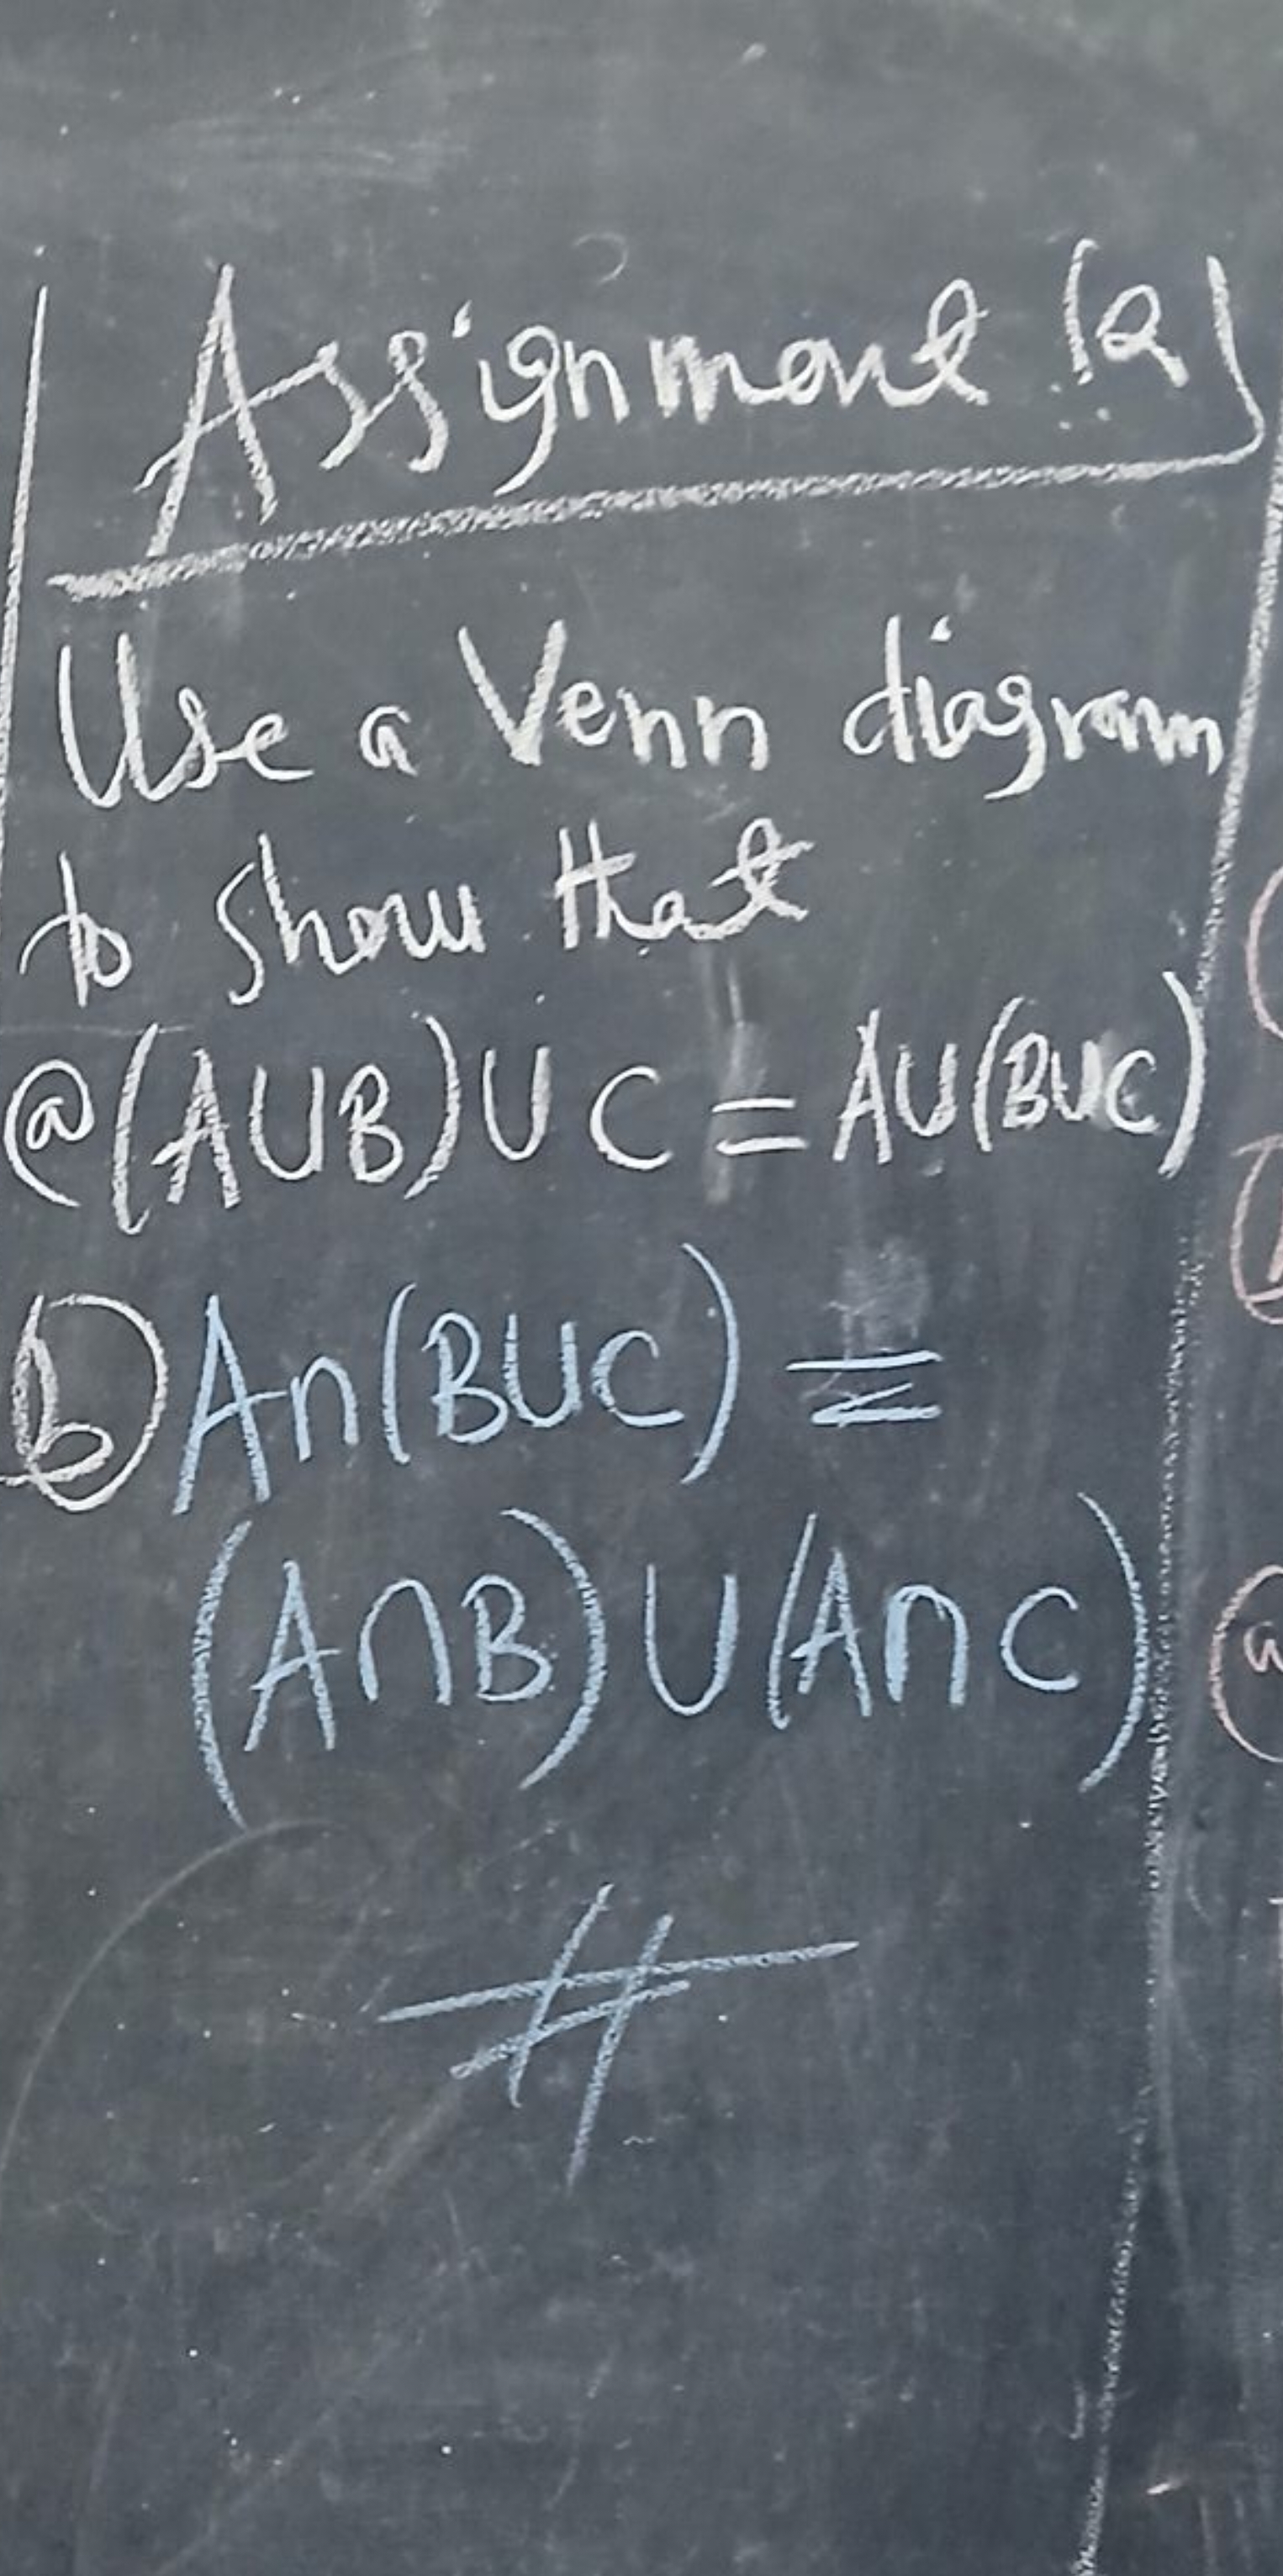 Assignment (2)
Use a Venn diagram
to show that
(a) (A∪B)∪C = A∪(B∪C)
(b) A∩(B∪C) =
(A∩B)∪(A∩C)